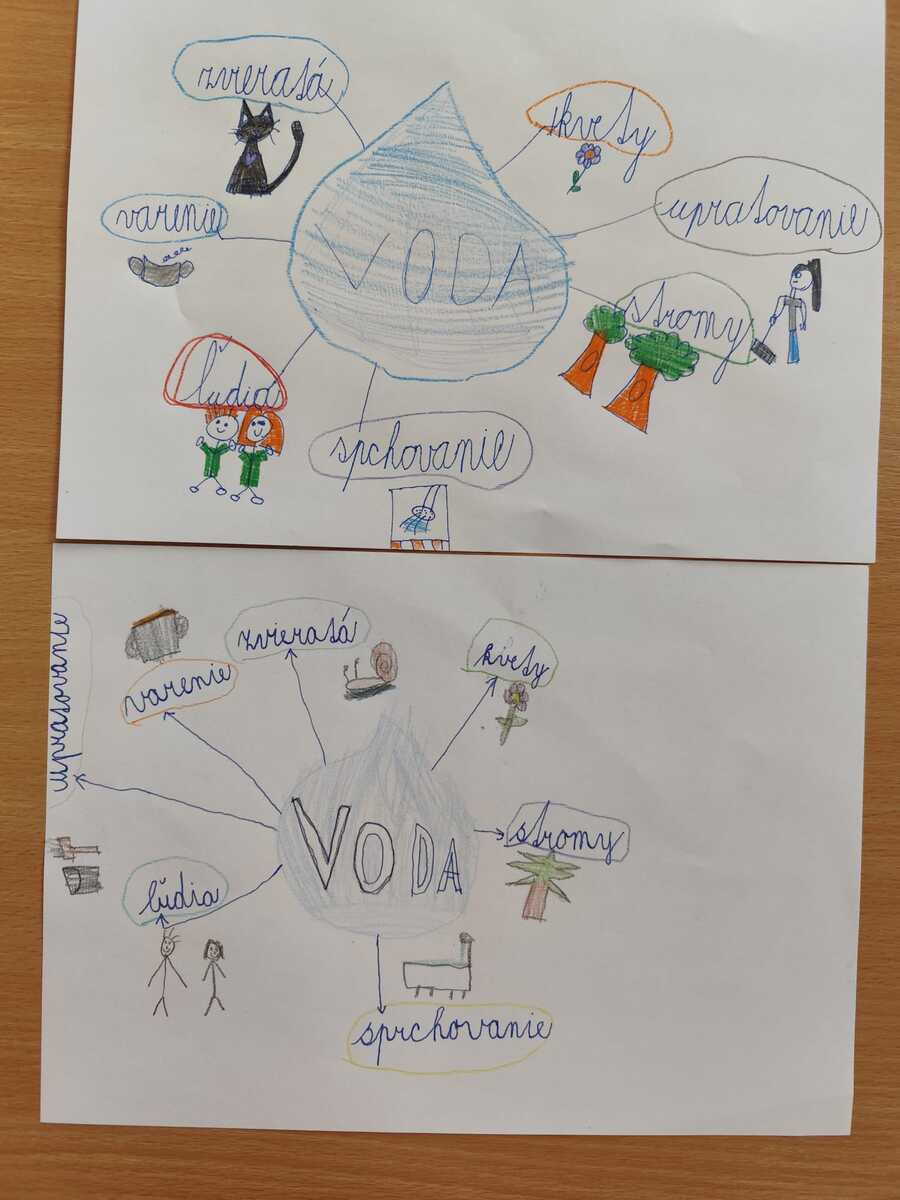 zvieratá
kvety
varenie
upratovanie
VODA
stromy
ľudia
spchovanie
upratovanie
zvieratá
kvety
varenie
VODA
stromy
ľudia
sprchovanie